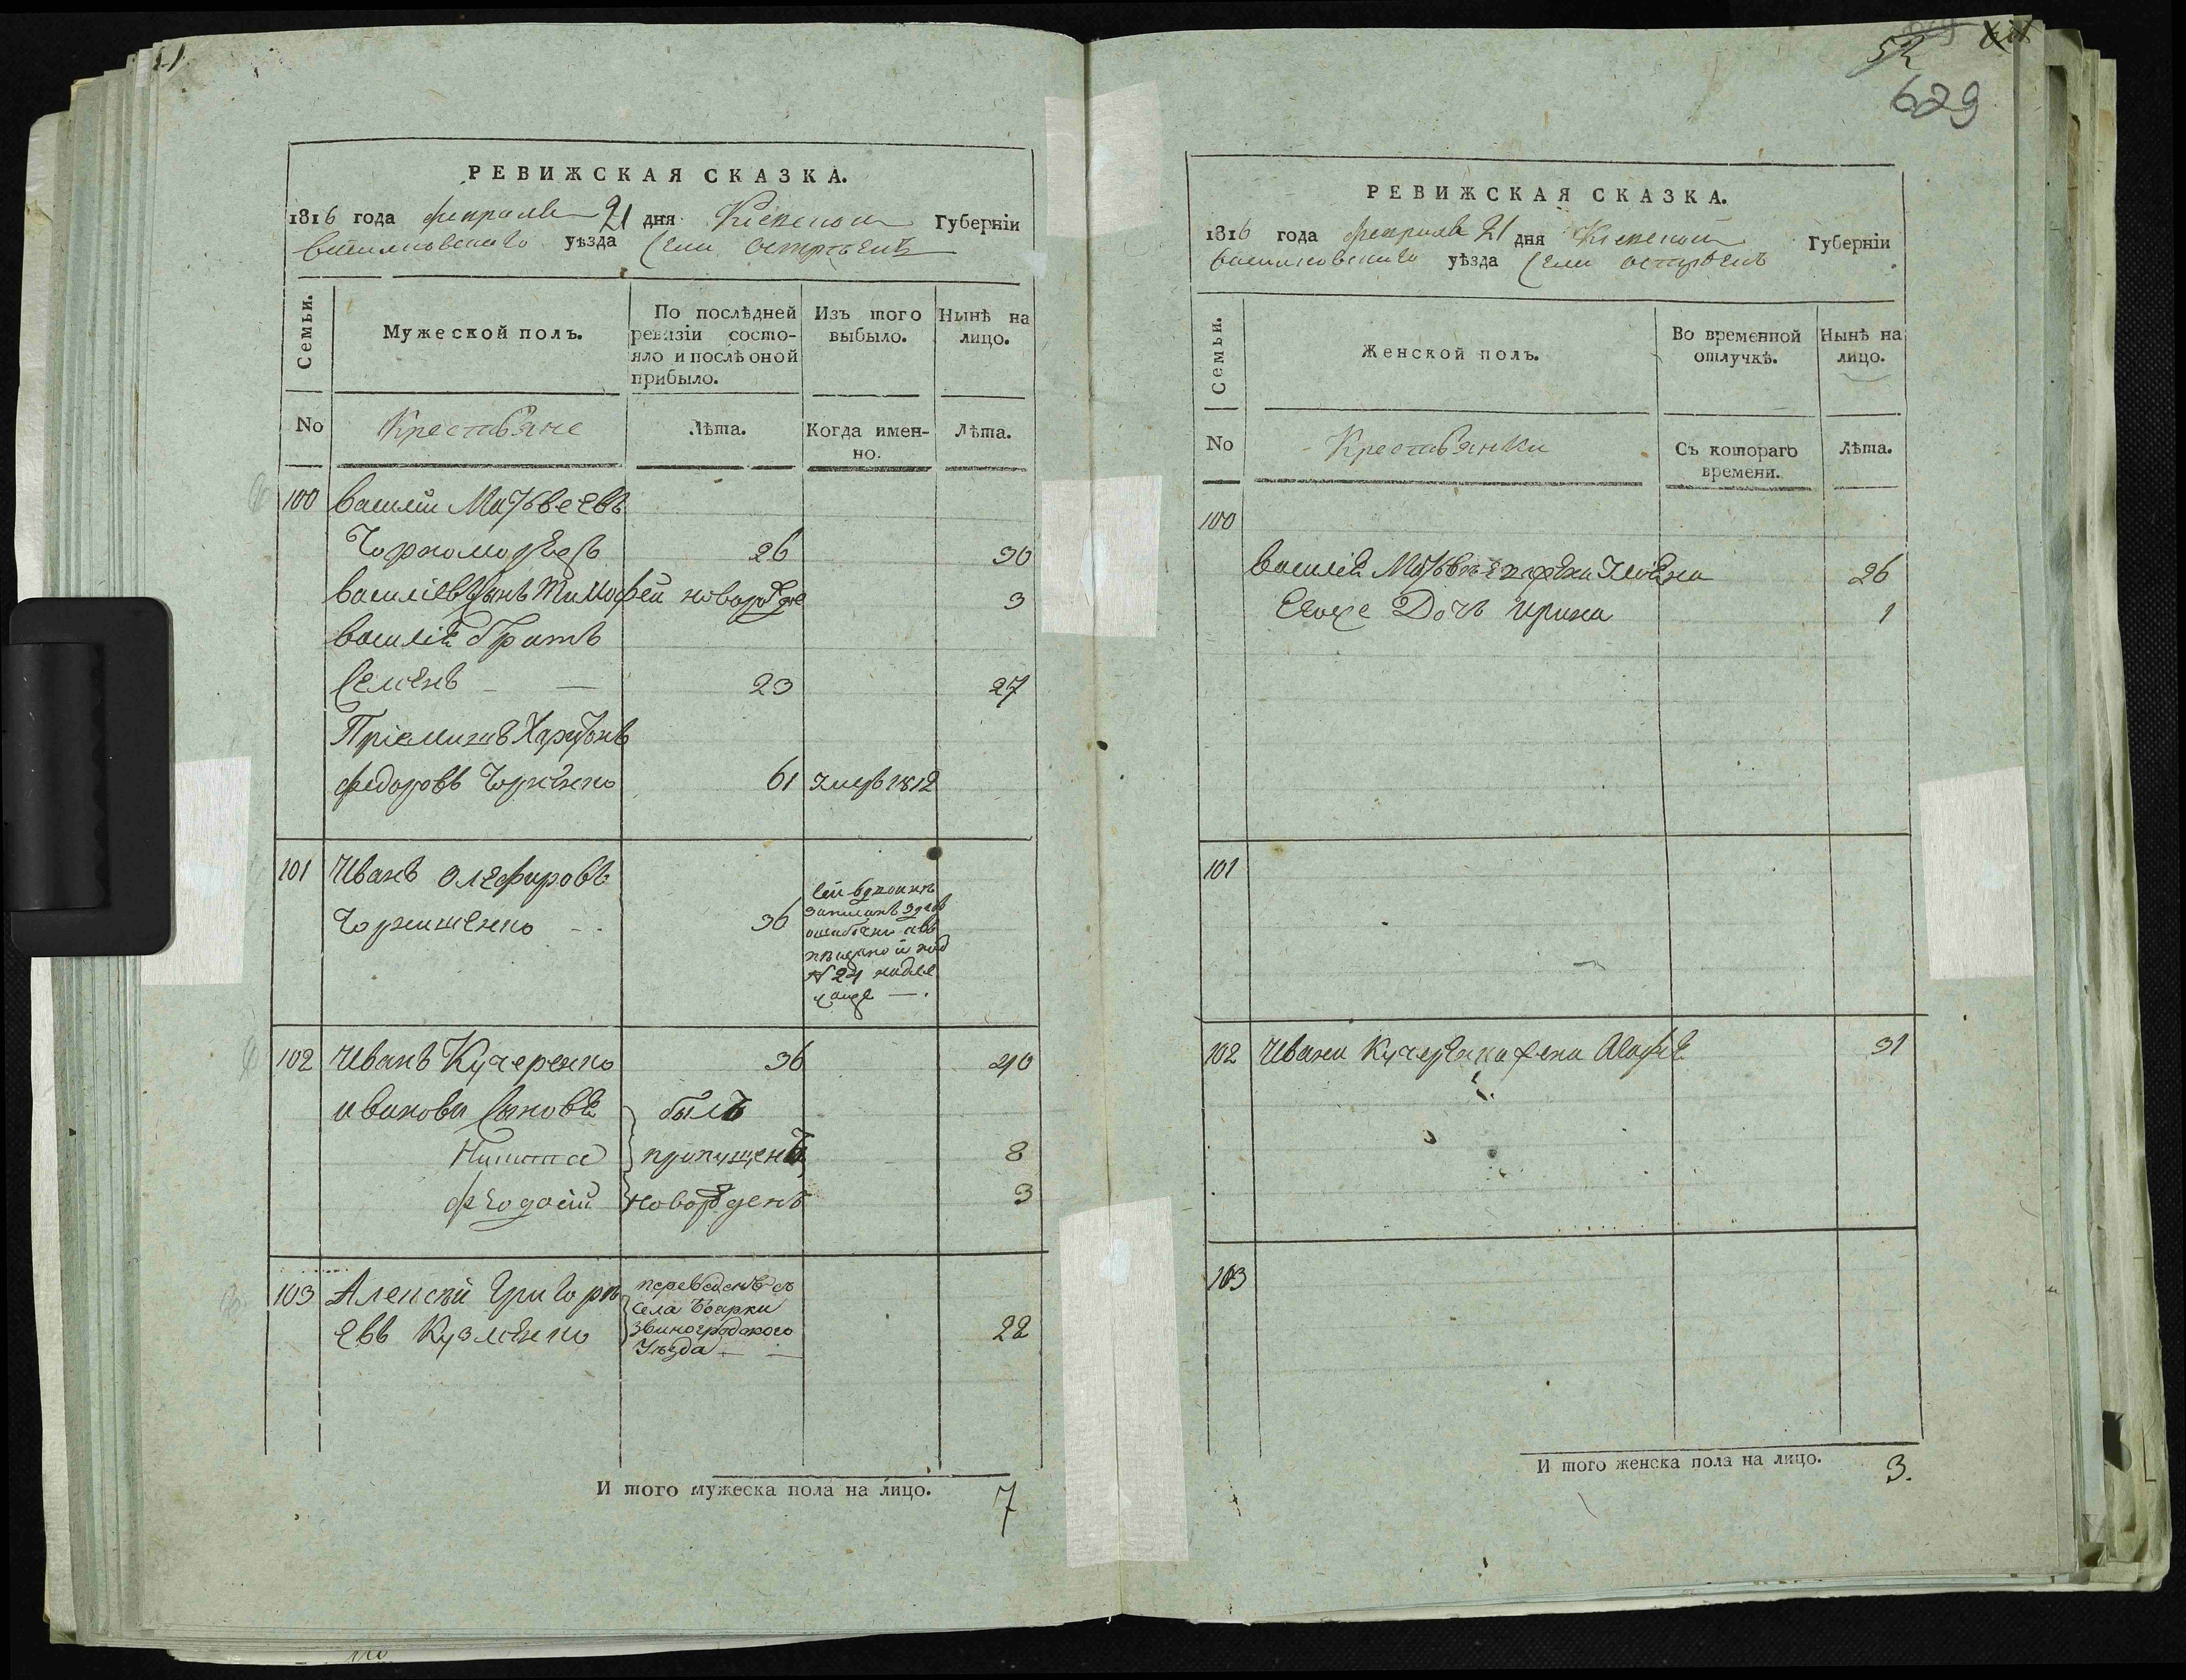 РЕВИЖСКАЯ СКАЗКА.
1816 года февраля 21 дня Кіевской Губерніи
Васильковского уѣзда Села Острѣекъ
Семьи.
Мужеской полъ.
По послѣдней ревизіи состояло и послѣ оной прибыло.
Изъ того выбыло.
Нынѣ на лицо.
No Крестьяне Лѣта. Когда именно. Лѣта.
100 Василий Матвеевъ
26 30
Василіевъ сынъ Тимофей новорожде 3
Василія братъ
Семенъ 23 27
Пріймакъ Харитонъ
Федоровъ 61 умеръ 1812
101 Иванъ Олефировъ
36
Сей
записанъ здесь
ошибочно
под
N 24
102 Иванъ Кучеренко 36 40
Ивановы сыновья былъ
Никита пропущенъ 8
Феодосій новорожденъ 3
103 Алексѣй Григорь
евъ Кузменко 22
переведенъ съ
села Боярки
Звиногродского
Уѣзда
И того мужеска пола на лицо. 7
52
629
РЕВИЖСКАЯ СКАЗКА.
1816 года февраля 21 дня Кіевской Губерніи
Васильковского уѣзда Села Острѣекъ
Семьи.
Женской полъ.
Во временной отлучкѣ.
Нынѣ на лицо.
No Крестьянки Съ котораго времени. Лѣта.
100
Василія жена 26
Егоже Дочь Ирина 1
101
102 Ивана Кучеренка жена Агафія 31
103
И того женска пола на лицо. 3.